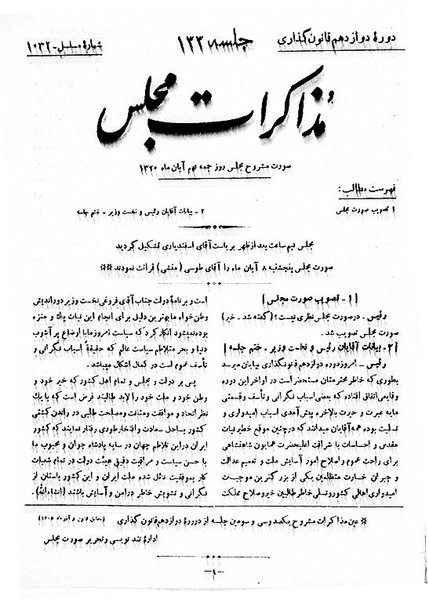 دورهٔ دوازدهم قانون گذاری
جلسه ۱۳۳
شمارهٔ مسلسل - ۱۰۳۲
مذاکرات مجلس
صورت مشروح مجلس روز جمعه نهم آبان ماه ۱۳۲۰
فهرست مطالب:
۱ تصویب صورت مجلس
۲ - بیانات آقایان رئیس و نخست وزیر - ختم جلسه
مجلس نیم ساعت بعد از ظهر بریاست آقای اسفندیاری تشکیل گردید
صورت مجلس پنجشنبه ۸ آبان ماه را آقای طوسی (منشی) قرائت نمودند
[۱ - تصویب صورت مجلس]
رئیس - در صورت مجلس نظری نیست؟ (گفته شد - خیر)
صورت مجلس تصویب شد.
[۲ - بیانات آقایان رئیس و نخست وزیر - ختم جلسه]
رئیس - امروز دوره دوازدهم قانونگذاری بپایان میرسد
بطوری که خاطر محترمتان مستحضر است در اواخر این دوره
وقایعی اتفاق افتاد که بعضی اسباب نگرانی و تأسف وقسمتی
مایه عبرت و حیرت بالاخره پیش‌آمدی اسباب امیدواری و
تسلیت بوده همه آقایان میدانند که در چنین موقع خطیر نیات
مقدس و احساسات با شرافت اعلیحضرت همایون شاهنشاهی
برای راحت عموم و اصلاح امور آسایش ملت و تعمیم عدالت
و جبران خسارت متظلمین یکی از بزرگترین موجبات
امیدواری اهالی کشور و تسلی خاطر طالبین خیر و صلاح مملکت
است و برنامهٔ دولت جناب آقای فروغی نخست وزیر دوراندیش
وطن‌خواه ما بهترین دلیل برای انجام این نیات پاک و منزه
بوده نمیشود انکار کرد که سیاست امروز ما با اوضاع پر آشوب
دنیا و بحر متلاطم سیاست عالم که حقیقةً اسباب نگرانی و
تأسف عموم است در کمال اشکال میباشد.
پس بر دولت و مجلس و تمام اهل کشور که خیر خود و
وطن خود و ملت خود را لابد طالبند فرض است که با یک
نظر اتحاد و موافقت ومتانت ومصاحت طلبی در راندن کشتی
کشور بساحل سعادت و افتخار طوری رفتار نمایند که کشور
ایران در این تلاطم جهان در سایه پادشاه جوان و محبوب ما
با حسن سیاست و مراقبت دقیق هیئت دولت در تمام شعبات
کار بموفقیت نائل شده ملت ایران و این کشور باستان از
نگرانی و تشویش خاطر در امن و آسایش باشند (انشاءالله).
عین مذاکرات مشروح یکصد و سی و سومین جلسه از دورهٔ دوازدهم قانون گذاری
ادارهٔ تند نویسی و تحریر صورت مجلس
- ۱ -